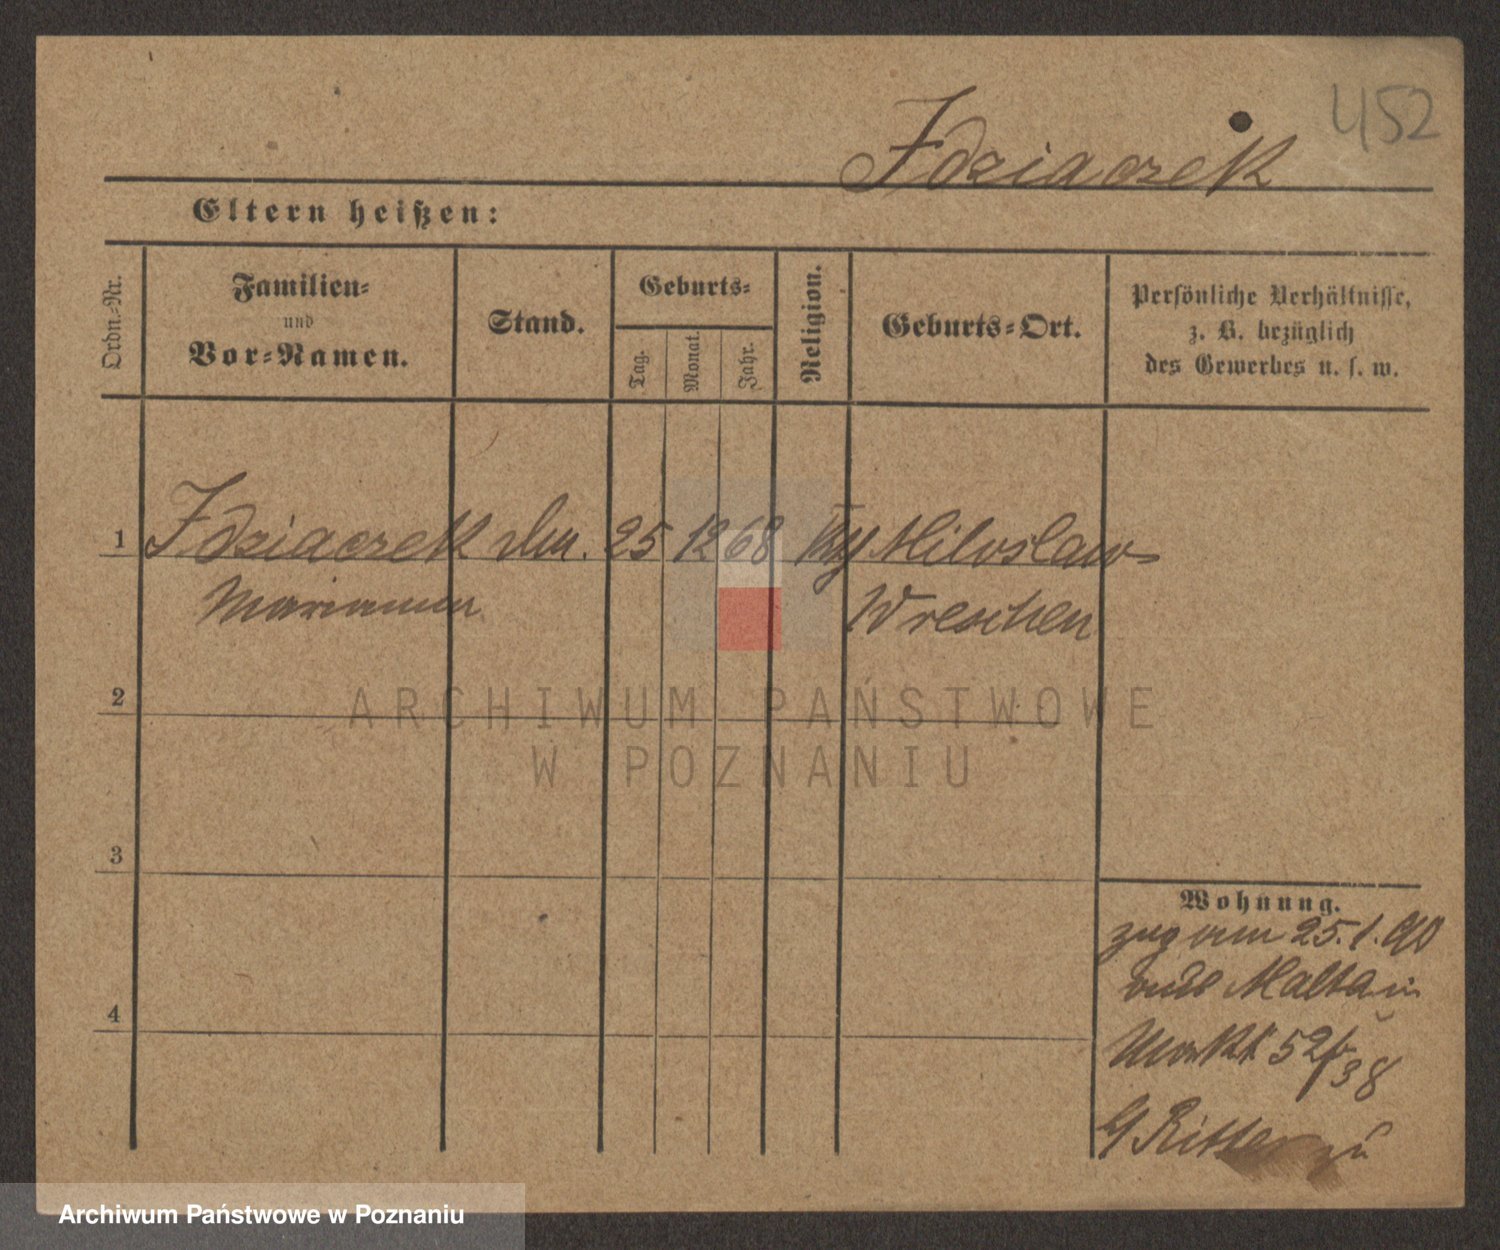 452
Idziaczek
Eltern heißen:
Ordn.-Nr.
Familien-
und
Vor-Namen.
Stand.
Geburts-
Tag.
Monat.
Jahr.
Religion.
Geburts-Ort.
Persönliche Verhältnisse,
z. B. bezüglich
des Gewerbes u. s. w.
1 Idziaczek 25 12 68 Miloslaw
Marianna Wreschen
2
3
4
Wohnung.
zug vom 25.1.90
aus Malta in
Markt 52 / 38
Ritter
ARCHIWUM PAŃSTWOWE
W POZNANIU
Archiwum Państwowe w Poznaniu